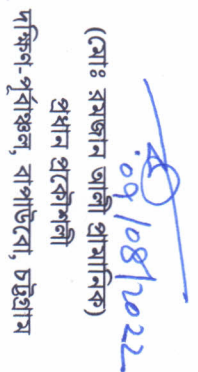 09/08/2022
(মোঃ রমজান আলী প্রামানিক)
প্রধান প্রকৌশলী
দক্ষিণ-পূর্বাঞ্চল, বাপাউবো, চট্টগ্রাম